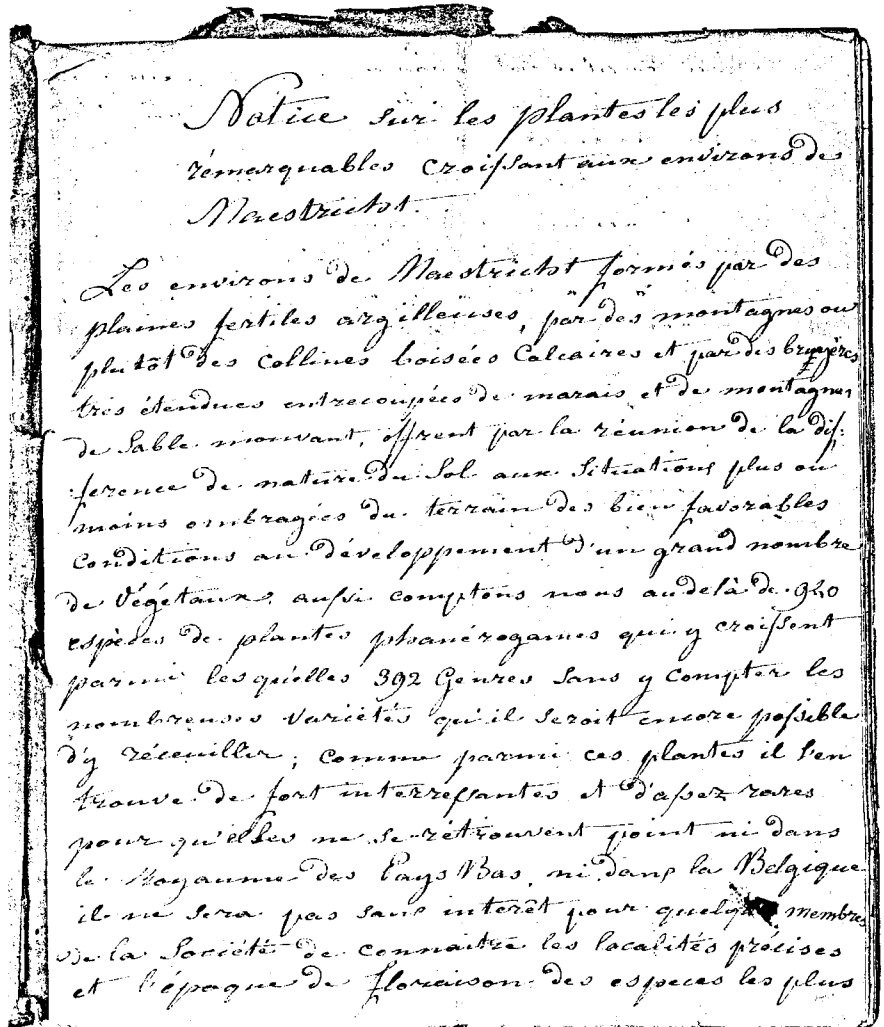 Notice sur les plantes les plus
rémarquables croissant aux environs de
Maestricht.
Les environs de Maestricht formés par des
plaines fertiles argilleuses, par des montagnes ou
plutôt des collines boisées Calcaires et par des bruyères
très étendues entrecoupées de marais et de montagnes
de Sable mouvant, offrent par la réunion de la dif=
ference de nature du Sol aux Situations plus ou
moins ombragées du terrain des bien favorables
Conditions au développement d'un grand nombre
de Végétaux, aussi comptons nous au delà de 920
espèces de plantes phanérogames qui y croissent
parmi lesquélles 392 Genres Sans y Compter les
nombreuses Variétés qu'il seroit encore possible
d'y récéuillir; Comme parmi ces plantes il s'en
trouve de fort interressantes et d'assez rares
pour qu'elles ne se rétrouvent point ni dans
le Royaume des Pays Bas, ni dans la Belgique
il ne sera pas sans intérêt pour quelques membres
de la Société de connaitre les localités précises
et l'époque de floraison des especes les plus